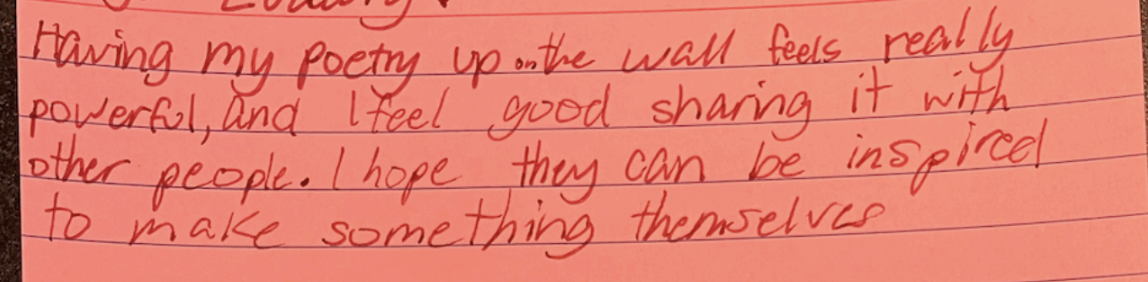 Having my poetry up on the wall feels really
powerful, and I feel good sharing it with
other people. I hope they can be inspired
to make something themselves